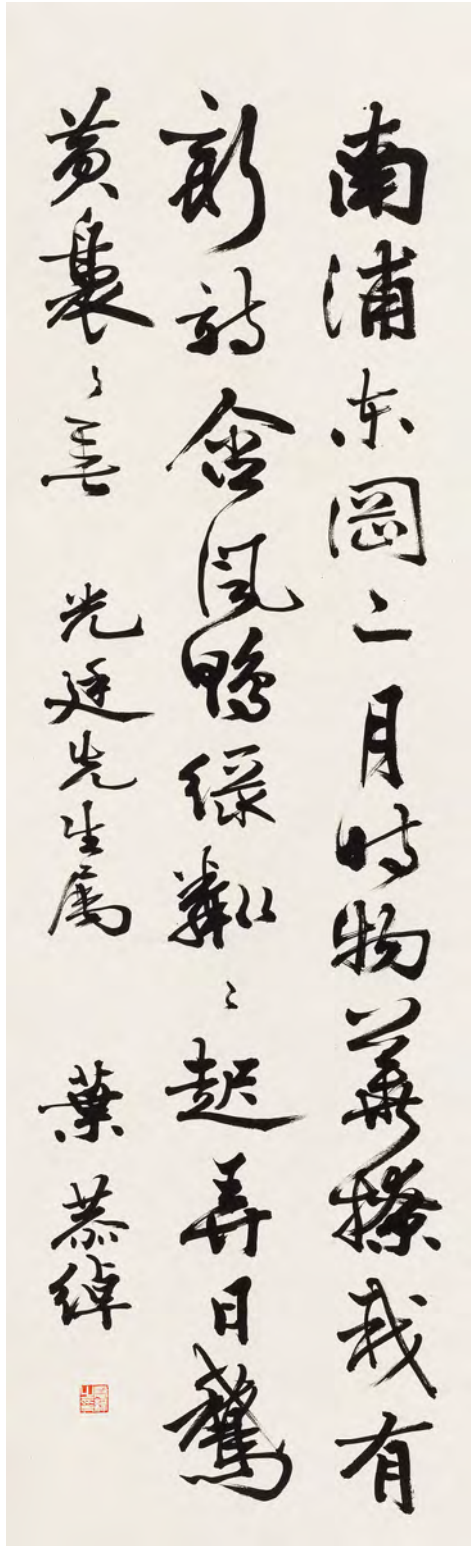 南浦东冈二月时物華撩我有
新詩含風鴨绿粼〻起弄日鵞
黄裊〻垂　光廷先生属　葉恭綽